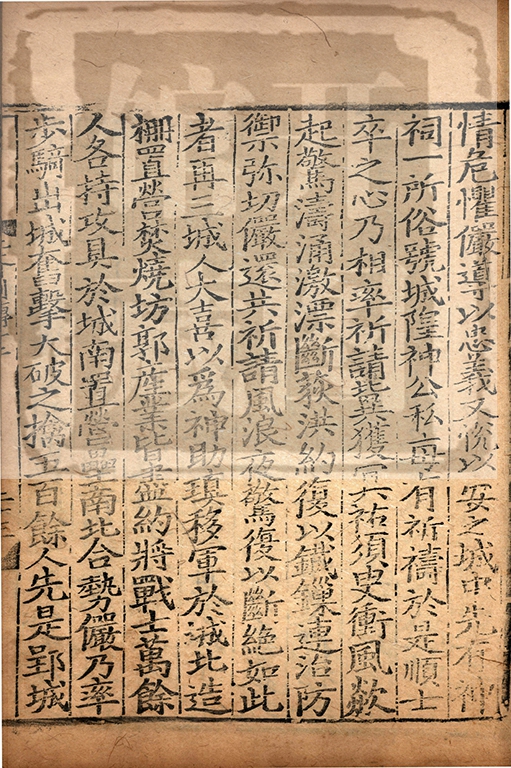 情危懼儼導以忠義又悅以安之城中先有神
祠一所俗號城隍神公私每有祈禱於是順士
卒之心乃相率祈請冀獲冥祐須臾衝風歘
起驚濤涌激漂斷荻洪約復以鐵鏁連治防
禦弥切儼還共祈請風浪夜驚復以斷絶如此
者再三城人大喜以爲神助瑱移軍於城北造
柵置營焚燒坊郭産業皆盡約將戰士萬餘
人各持攻具於城南置營壘南北合勢儼乃率
步騎出城奮擊大破之擒五百餘人先是郢城